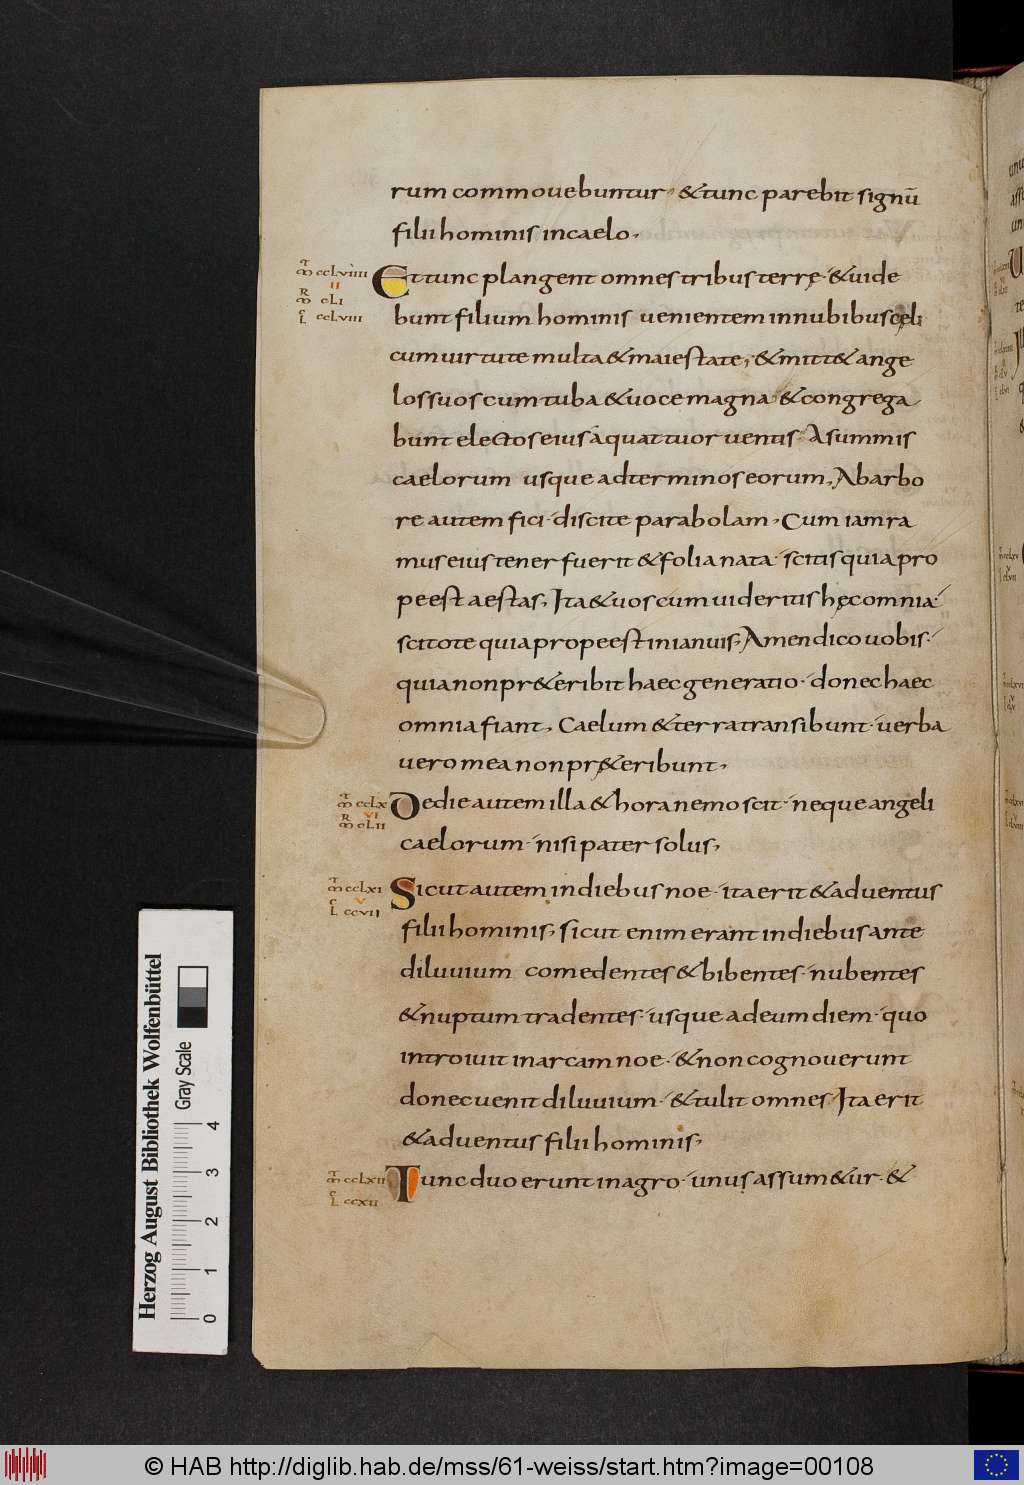 rum commouebuntur · & tunc parebit signū
filii hominis in caelo,
m cclviiii
II
mr cli
l cclviii
Et tunc plangent omnes tribus terrę · & uide
bunt filium hominis uenientem in nubibus cęli
cum uirtute multa & maiestate, & mitt& ange
los suos cum tuba & uoce magna · & congrega
bunt electos eius a quattuor uentis · A summis
caelorum usque ad terminos eorum, Ab arbo
re autem fici · discite parabolam, Cum iam ra
mus eius tener fuerit & folia nata · scitis quia pro
pe est aestas, Ita & uos cum uideritis hęc omnia ·
scitote quia prope est in ianuis, Amen dico uobis ·
quia non pr&eribit haec generatio · donec haec
omnia fiant, Caelum & terra transibunt · uerba
uero mea non pr&eribunt,
m cclx
VI
mr clii
De die autem illa & hora nemo scit · neque angeli
caelorum · nisi pater solus,
m cclxi
V
l ccvii
Sicut autem in diebus noe · ita erit & aduentus
filii hominis, sicut enim erant in diebus ante
diluuium comedentes & bibentes · nubentes
& nuptum tradentes · usque ad eum diem · quo
introiuit in arcam noe · & non cognouerunt
donec uenit diluuium · & tulit omnes · Ita erit
& aduentus filii hominis,
m cclxii
l ccxii
Tunc duo erunt in agro · unus assum&ur · &
Herzog August Bibliothek Wolfenbüttel
Gray Scale
0 1 2 3 4
© HAB http://diglib.hab.de/mss/61-weiss/start.htm?image=00108